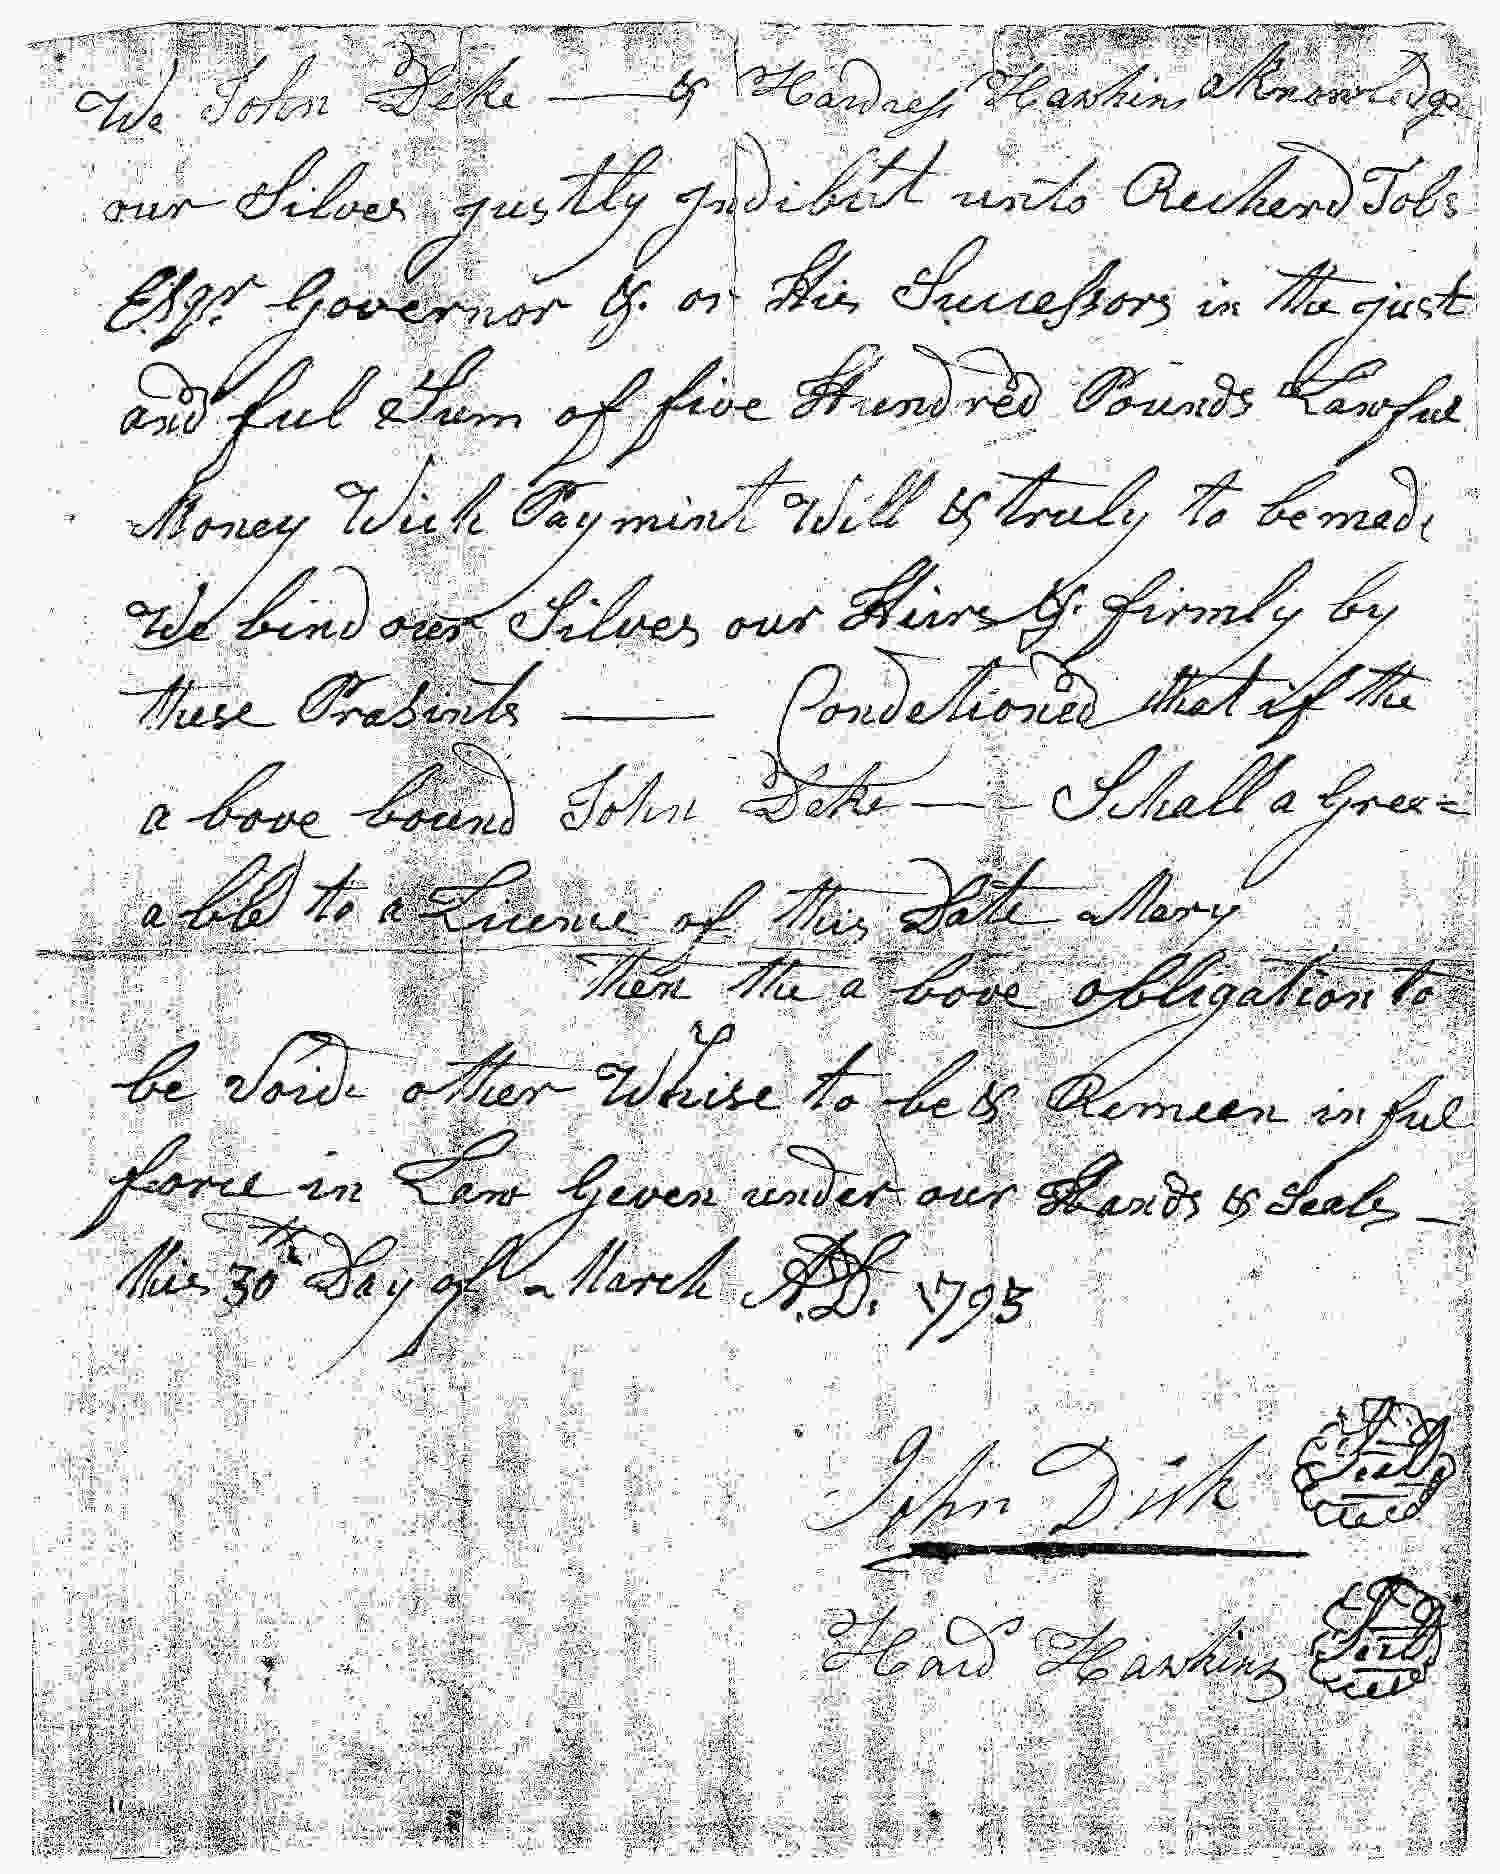 We John Deke — & Hardress Hawkins aknowledge
our Silves justly jndibtit unto Recherd Tobs
Esqr. Governor &. or His Sucessors in the just
and ful Sum of five Hundred Pounds Lawful
Money Wich Paymint Will & truly to be made
We bind our Silves our Hiirs &. firmly by
these Prasints — Condetioned that if the
a bove bound John Deke — Schall a Gree=
able to a Licence of this Date Mary
then the a bove obligation to
be Void other Whise to be & Remeen in ful
force in Law Geven under our Hands & Seals —
this 30th Day of March A.D. 1793
John Dick Seal
Hard Hawkins Seal